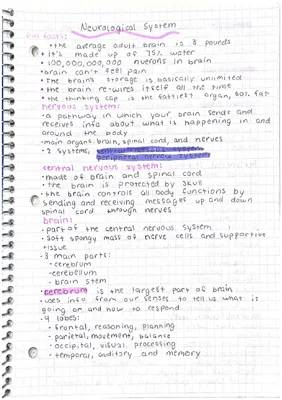 Neurological System
fun facts:
•the average adult brain is 3 pounds
•it's made up of 75% water
•100,000,000,000 nuerons in brain
•brain can't feel pain
•the brains storage is basically unlimited
•the brain re-wires itself all the time
•the thinking cap is the fattiest organ, 60% fat
nervous system:
•a pathway in which your brain sends and
receives info about what is happening in and
around the body
•main organs: brain, spinal cord, and nerves
•2 systems, central nervous system,
peripheral nervous system
central nervous system:
•made of brain and spinal cord
•the brain is protected by skull
•the brain controls all body functions by
sending and receiving messages up and down
spinal cord through nerves
brain:
•part of the central nervous system
•soft spongy mass of nerve cells and supportive
tissue
•3 main parts:
-cerebrum
-cerebellum
-brain stem
•cerebrum is the largest part of brain
•uses info from our senses to tell us what is
going on and how to respond
•4 lobes:
•frontal, reasoning, planning
•parietal, movement, balance
•occipital, visual processing
•temporal, auditory and memory